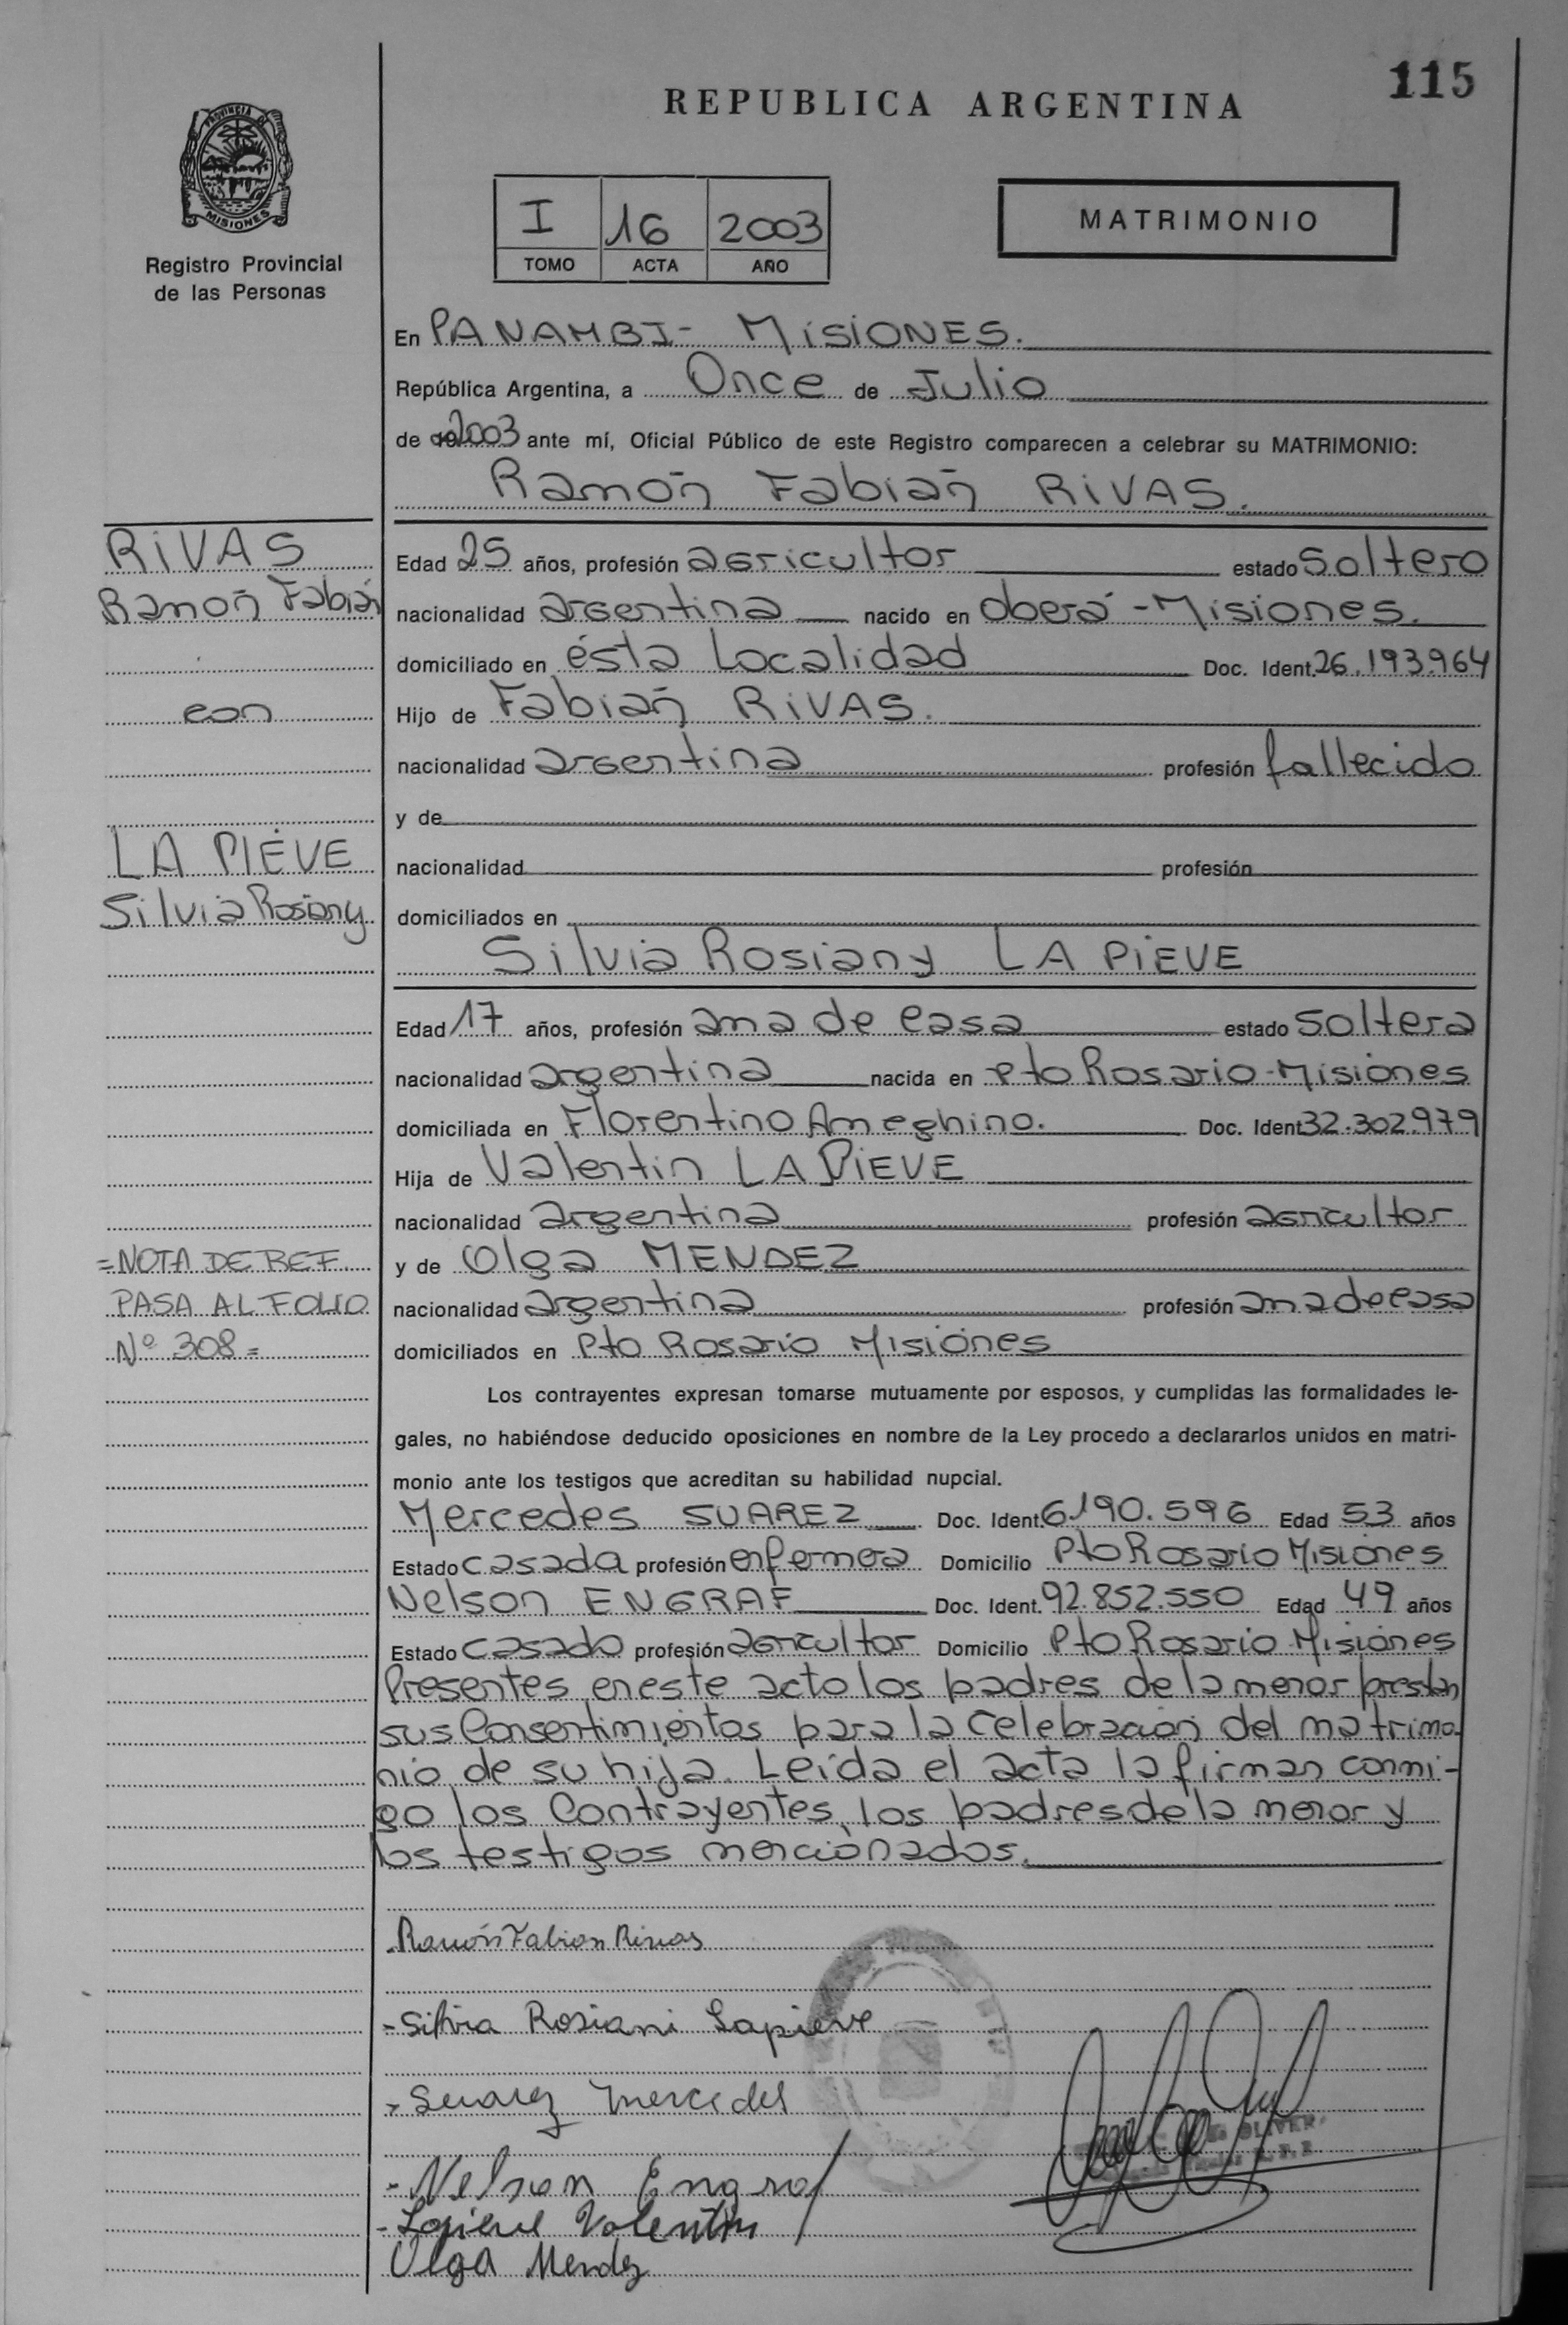 115
REPUBLICA ARGENTINA
PROVINCIA DE
MISIONES
Registro Provincial
de las Personas
I 16 2003
TOMO ACTA AÑO
MATRIMONIO
En PANAMBI- MISIONES.
República Argentina, a Once de Julio
de 2003 ante mí, Oficial Público de este Registro comparecen a celebrar su MATRIMONIO:
Ramón Fabián RIVAS.
RIVAS
Ramón Fabián
con
LA PIEVE
Silvia Rosiany
=NOTA DE REF.
PASA AL FOLIO
Nº 308=
Edad 25 años, profesión agricultor estado soltero
nacionalidad argentina nacido en Oberá-Misiones.
domiciliado en ésta Localidad Doc. Ident. 26.193.964
Hijo de Fabián RIVAS.
nacionalidad argentina profesión fallecido
y de
nacionalidad profesión
domiciliados en
Silvia Rosiany LA PIEVE
Edad 17 años, profesión ama de casa estado soltera
nacionalidad argentina nacida en Pto Rosario-Misiones
domiciliada en Florentino Ameghino. Doc. Ident 32.302.979
Hija de Valentin LA PIEVE
nacionalidad argentina profesión agricultor
y de Olga MENDEZ
nacionalidad argentina profesión ama de casa
domiciliados en Pto Rosario Misiones
Los contrayentes expresan tomarse mutuamente por esposos, y cumplidas las formalidades le-
gales, no habiéndose deducido oposiciones en nombre de la Ley procedo a declararlos unidos en matri-
monio ante los testigos que acreditan su habilidad nupcial.
Mercedes SUAREZ Doc. Ident. 6.190.596 Edad 53 años
Estado casada profesión enfermera Domicilio Pto Rosario Misiones
Nelson ENGRAF Doc. Ident. 92.852.550 Edad 49 años
Estado casado profesión agricultor Domicilio Pto Rosario-Misiones
Presentes en este acto los padres de la menor prestan
sus Consentimientos para la celebración del matrimo-
nio de su hija. Leída el acta la firman conmi-
go los Contrayentes, los padres de la menor y
los testigos mencionados.
Ramón Fabian Rivas
-Silvia Rosiani Lapieve
-Suarez Mercedes
-Nelson Engraf
-Lapieve Valentin
Olga Mendez